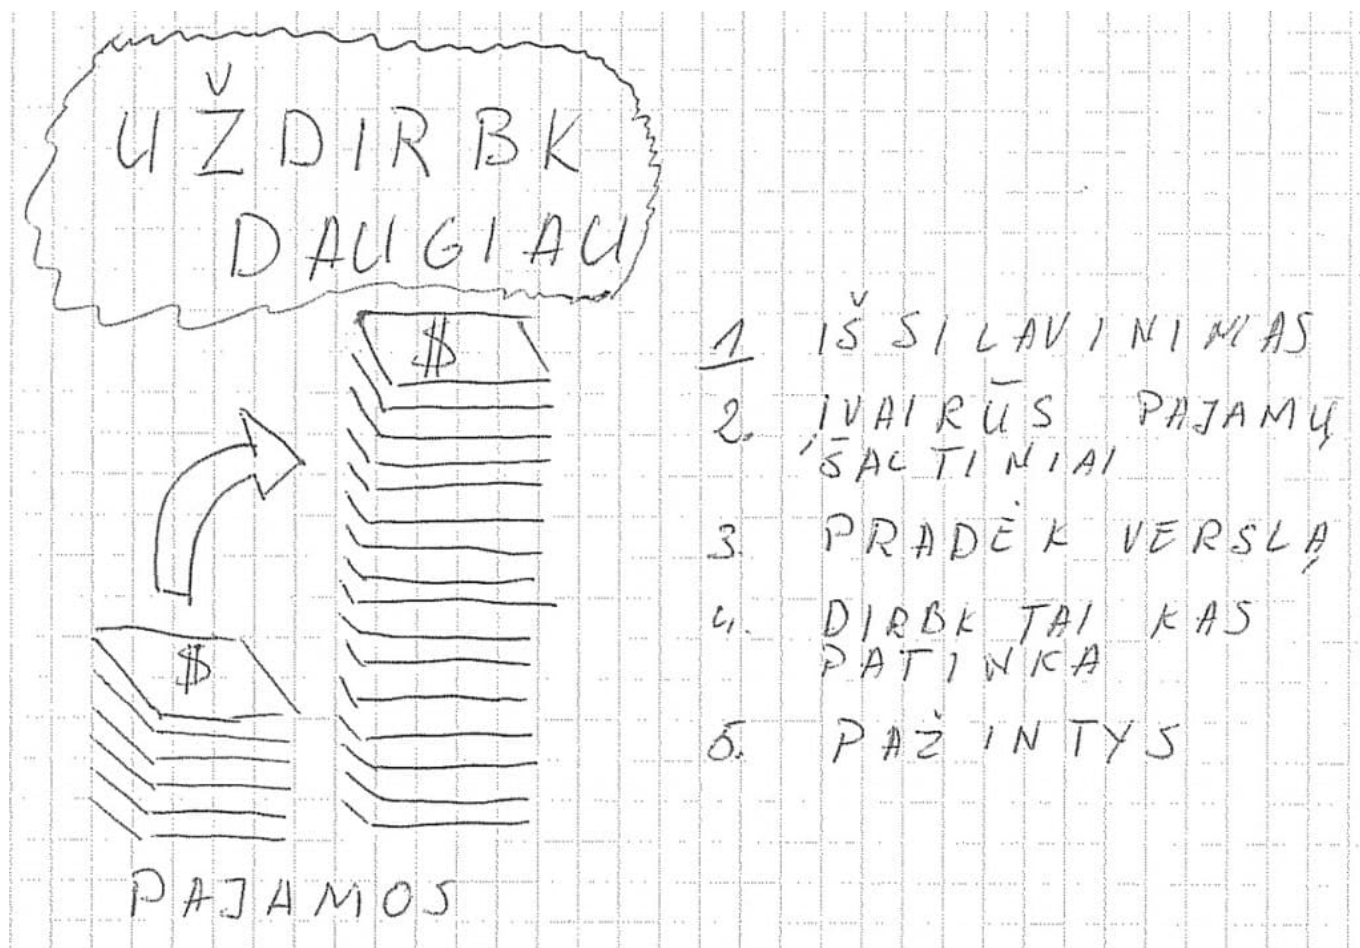 UŽDIRBK
DAUGIAU
$
$
PAJAMOS
1 IŠSILAVINIMAS
2. ĮVAIRŪS PAJAMŲ
ŠALTINIAI
3. PRADĖK VERSLĄ
4. DIRBK TAI KAS
PATINKA
5. PAŽINTYS